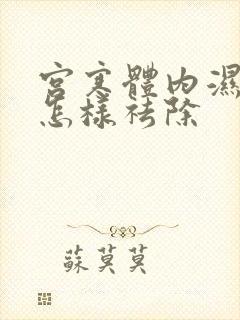 宫寒體内濕
怎樣祛除
蘇莫莫